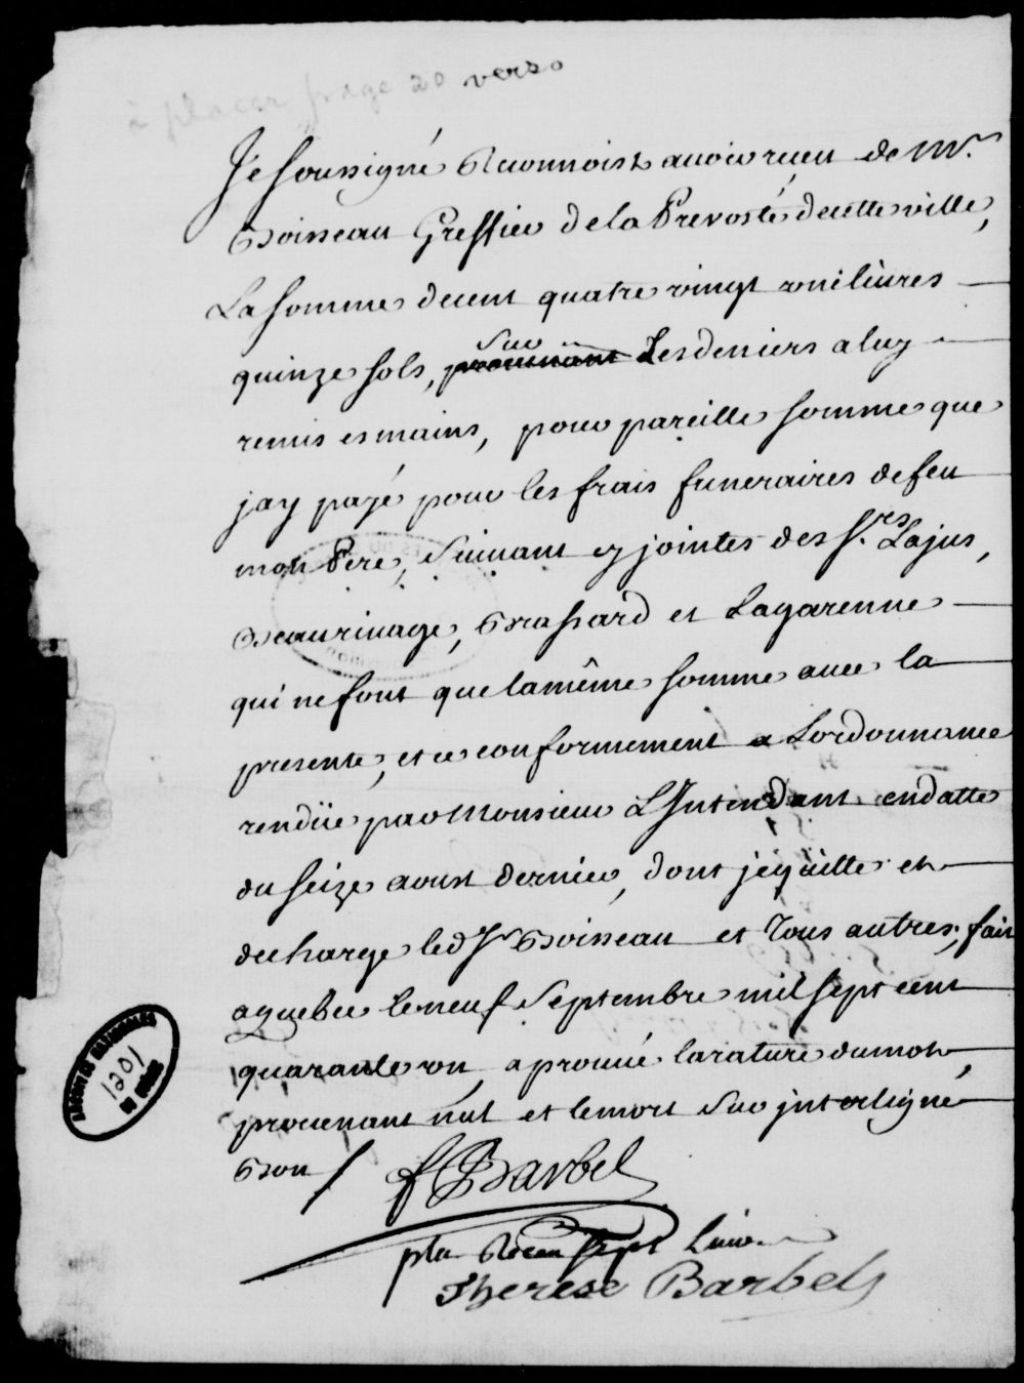 à placer page 20 verso
Je soussigné Reconnoist avoir receu de Mr.
Boisseau Greffier de la Prevosté de cette ville,
La somme de cent quatre vingt onze livres
quinze sols, provenant sur Les deniers a luy
remis es mains, pour pareille somme que
jay payé pour les frais funeraires de feu
mon Pere, suivant cy jointes des Srs. Lajus,
Beaurivage, Brassard et Lagarenne
qui ne font que la même somme avec la
presente, et ce conformement a Lordonnance
rendüe par Monsieur L'Intendant en datte
du seize aoust dernier, dont je quitte et
decharge led Sr Boisseau et Tous autres, fait
a quebec le neuf Septembre mil sept cent
quarante un, aprouvé la rature du mot
provenant nul et le mot sur interligne
Bon / f Barbel
sept
Therese Barbel
1201